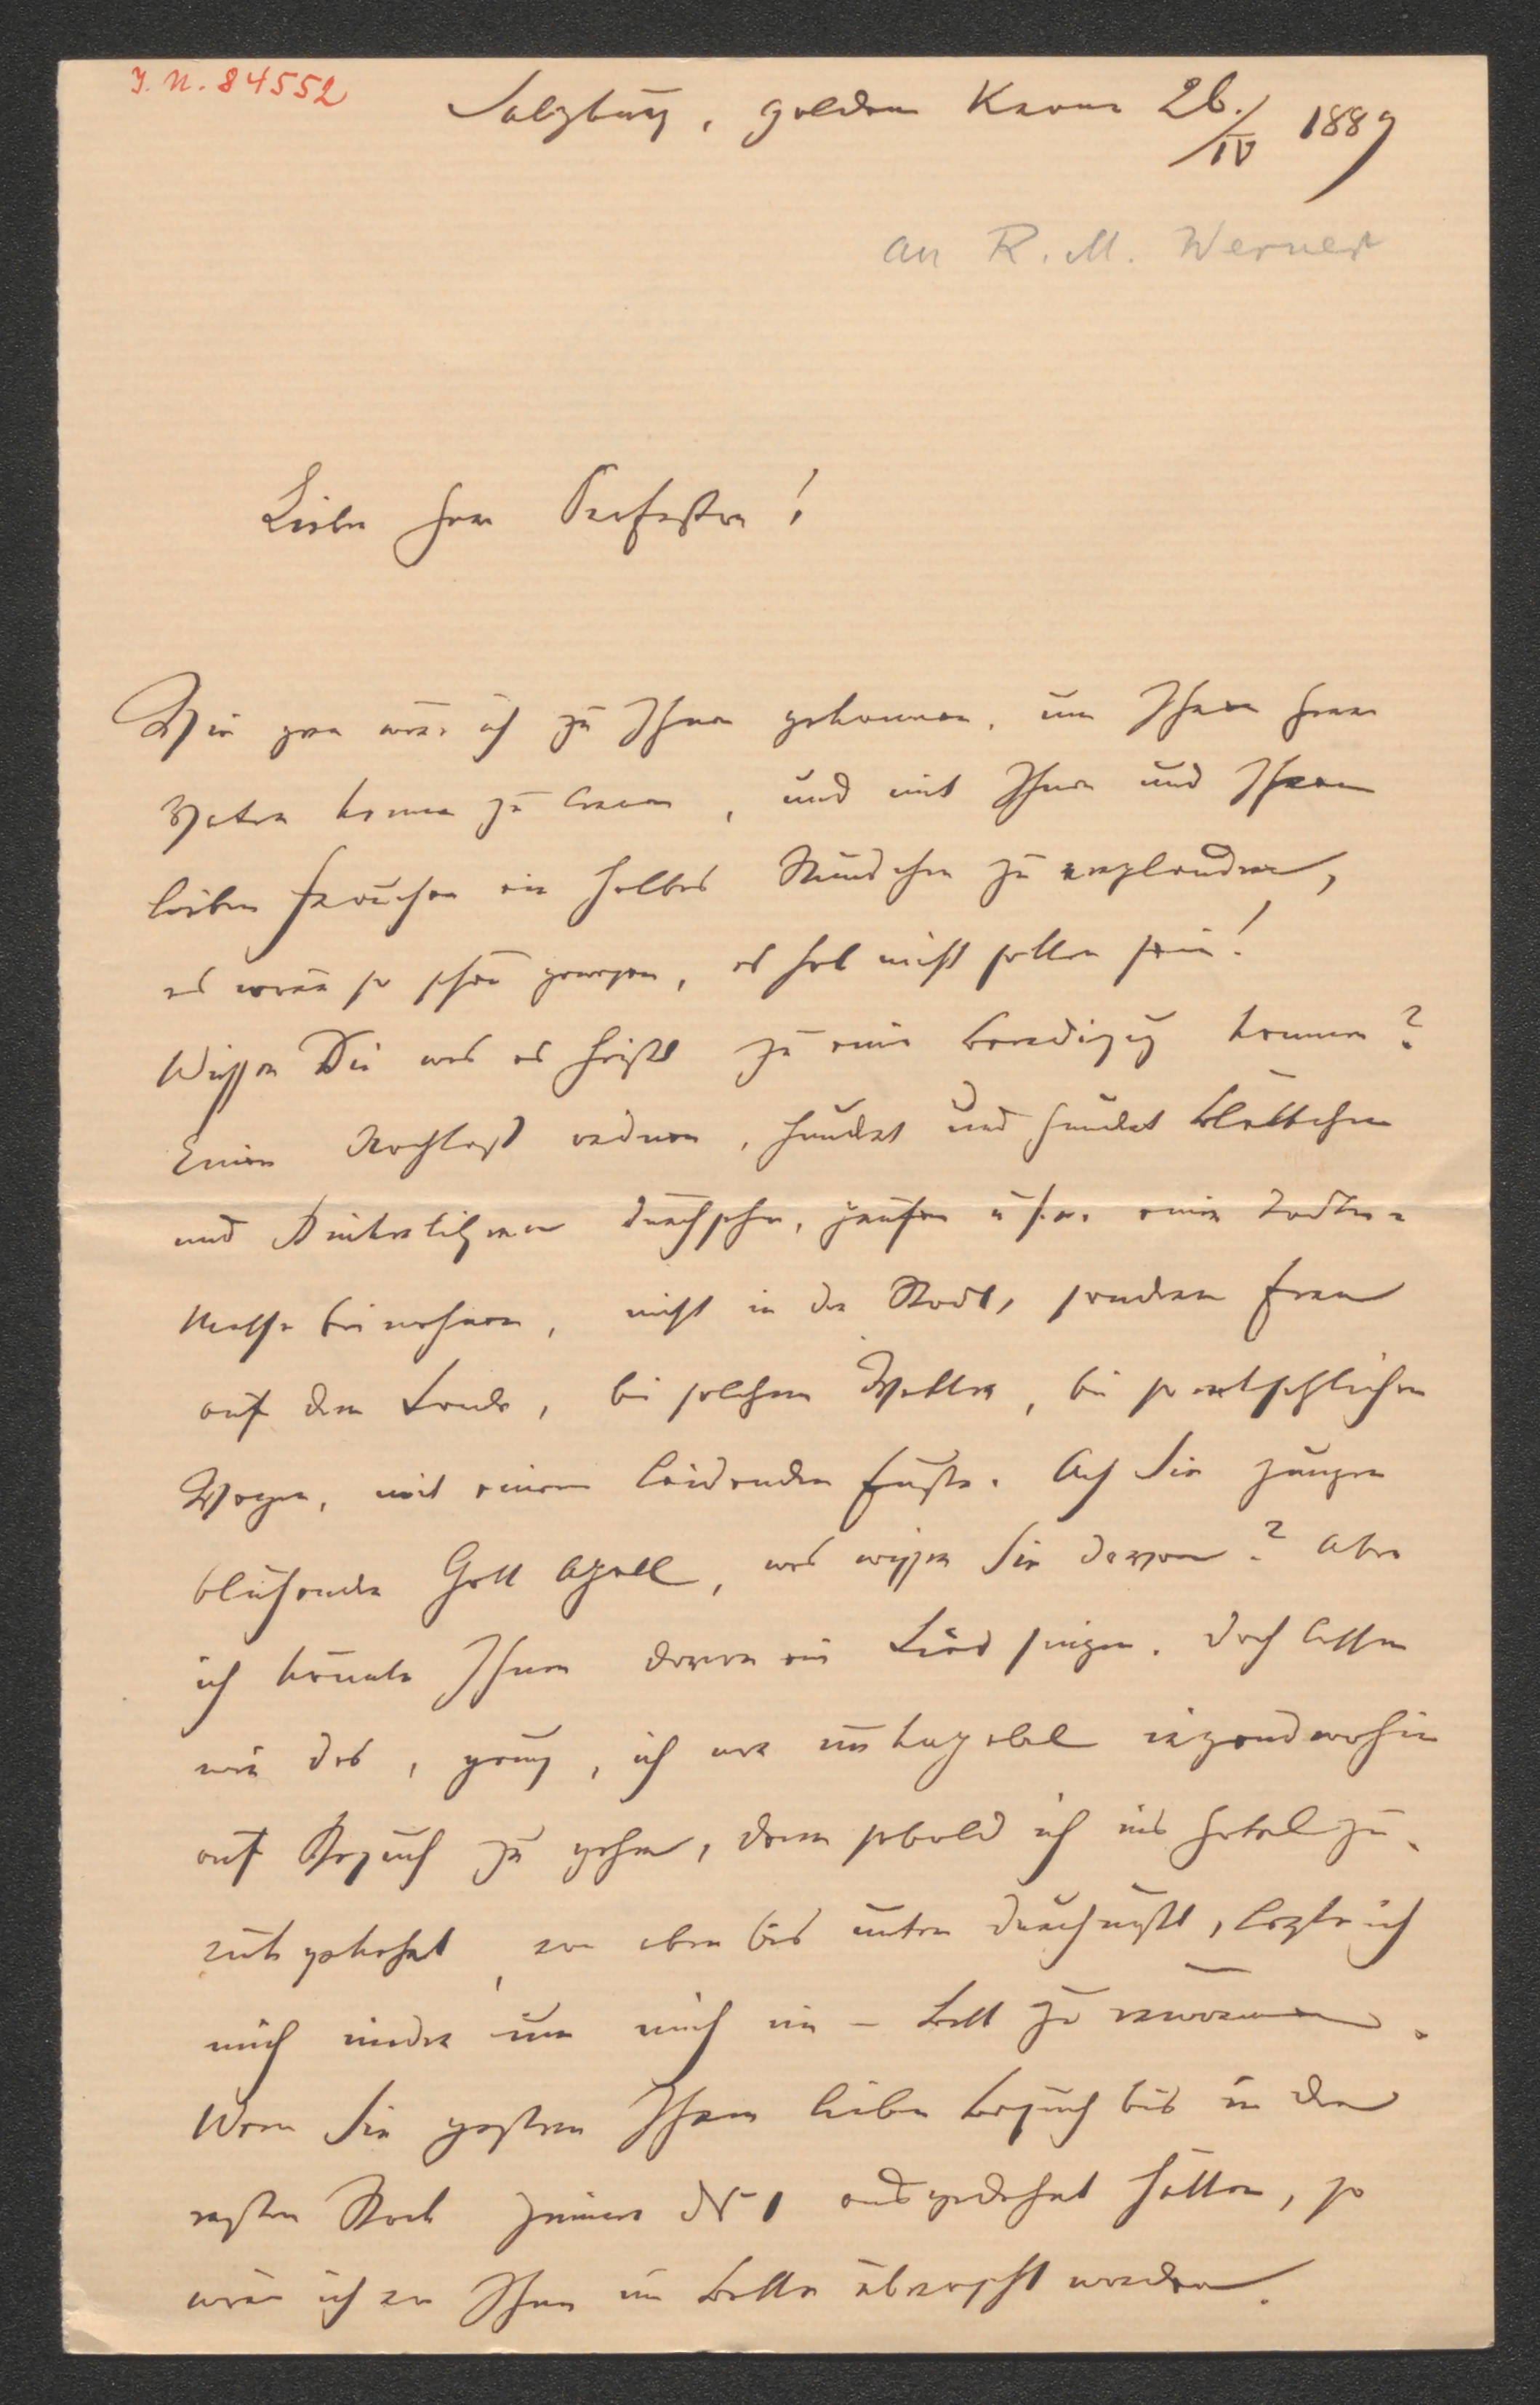 J. N. 84552
Salzburg, golden Krone 26./IV 1889
an R. M. Werner
Lieber Herr Professor!
Wie gern wäre ich zu Ihnen gekommen, um Ihren Herrn
Vater kennen zu lernen, und mit Ihnen und Ihrem
lieben Frauchen ein halbes Stündchen zu verplaudern,
es wäre so schön gewesen, es hat nicht sollen sein!
Wissen Sie was es heißt zu einer Beerdigung kommen?
Einen Nachlaß ordnen, hundert und hundert Blättchen
und durchsehn, u.s.w. einer Todten-
Messe beiwohnen, nicht in der Stadt, sondern fern
auf dem Lande, bei solchem Wetter, bei so entsetzlichen
Wegen, mit einem leidenden Fuße. Ach Sie junger
blühender Gott Apoll, was wissen Sie davon? Aber
ich könnte Ihnen davon ein Lied singen. Doch lassen
wir das, genug, ich war incapabel irgendwohin
auf Besuch zu gehen, denn sobald ich ins Hotel zu-
rückgekehrt, von oben bis unten durchnäßt, legte ich
mich nieder um mich im – Bett zu erwärmen.
Wenn Sie gestern Ihren lieben Besuch bis in den
ersten Stock Zimmer No 1 ausgedehnt hätten, so
wäre ich von Ihnen im Bette überrascht worden.